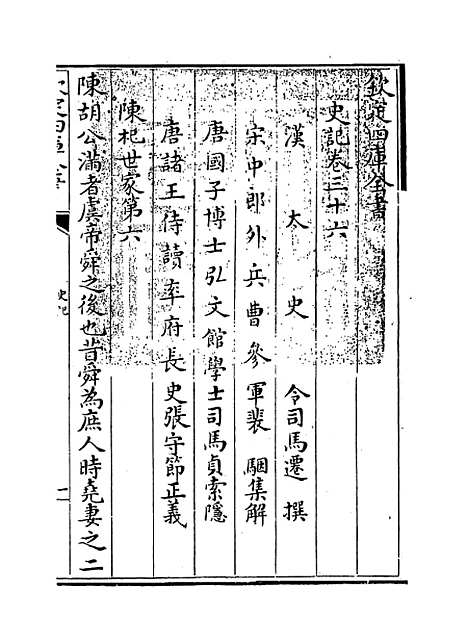 欽定四庫全書
史記卷三十六
漢太史令司馬遷撰
宋中郎外兵曹參軍裴駰集解
唐國子博士弘文館學士司馬貞索隱
唐諸王侍讀率府長史張守節正義
陳杞世家第六
陳胡公滿者虞帝舜之後也昔舜為庶人時堯妻之二
史記